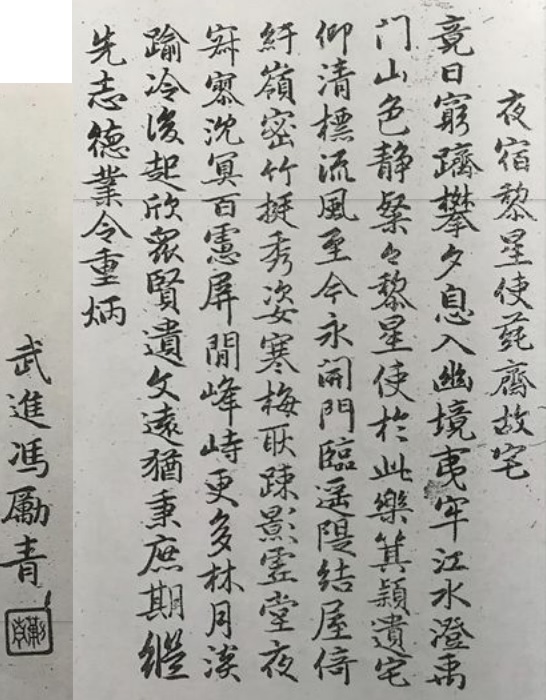 夜宿黎星使蒓齋故宅
竟日窮躋攀夕息入幽境夷牢江水澄禹
门山色静粲々黎星使於此樂箕潁遺宅
仰清標流風至今永開門臨遥隄結屋倚
紆嶺密竹挺秀姿寒梅耿疎影虛堂夜
寂寥沈冥百慮屏閒峰峙更多林月淡
踰冷後起欣衆賢遺文遠猶秉庶期繼
先志德業今重炳
武進馮勵青